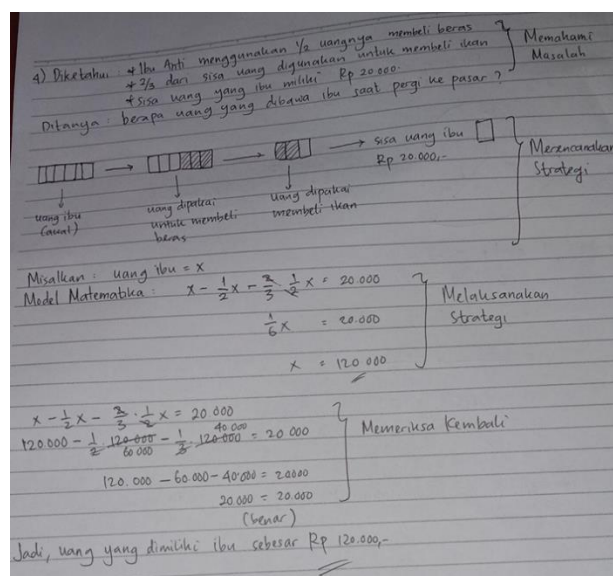 4) Diketahui : * Ibu Anti menggunakan 1/2 uangnya membeli beras
* 2/3 dari sisa uang digunakan untuk membeli ikan
* sisa uang yang ibu miliki Rp 20.000.
Memahami
Masalah
Ditanya : berapa uang yang dibawa ibu saat pergi ke pasar ?
→ → → sisa uang ibu
Rp 20.000,-
uang ibu
(awal)
uang dipakai
untuk membeli
beras
uang dipakai
membeli ikan
Merencanakan
Strategi
Misalkan : uang ibu = x
Model Matematika : x - 1/2 x - 2/3 · 1/2 x = 20.000
1/6 x = 20.000
x = 120.000
Melaksanakan
Strategi
x - 1/2 x - 2/3 · 1/2 x = 20.000
40.000
120.000 - 1/2 · 120.000 - 1/3 · 120.000 = 20.000
60.000
120.000 - 60.000 - 40.000 = 20000
20.000 = 20.000
(benar)
Memeriksa Kembali
Jadi, uang yang dimiliki ibu sebesar Rp 120.000,-